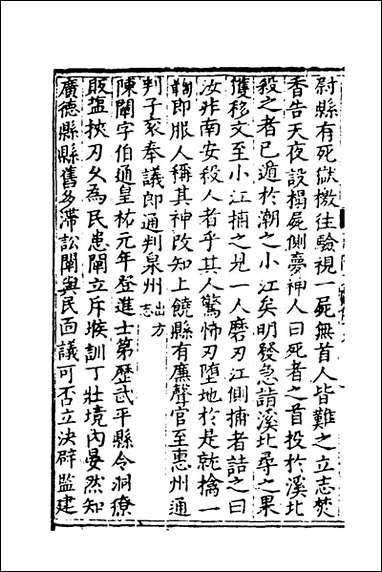 尉縣有死獄檄往驗視一屍無首人皆難之立志焚
香告天夜設榻屍側夢神人曰死者之首投於溪北
殺之者已遁於潮之小江矣明發急請溪北尋之果
獲移文至小江捕之見一人磨刃江側捕者詰之曰
汝非南安殺人者乎其人驚怖刃墮地於是就擒一
鞫即服人稱其神改知上饒縣有廉聲官至惠州通
判子褒奉議郎通判泉州出方志
陳闡字伯通皇祐元年登進士第歷武平縣令洞獠
販盐挾刃久為民患闡立斥堠訓丁壯境內晏然知
廣德縣縣舊多滯訟闡與民面議可否立決辟監建